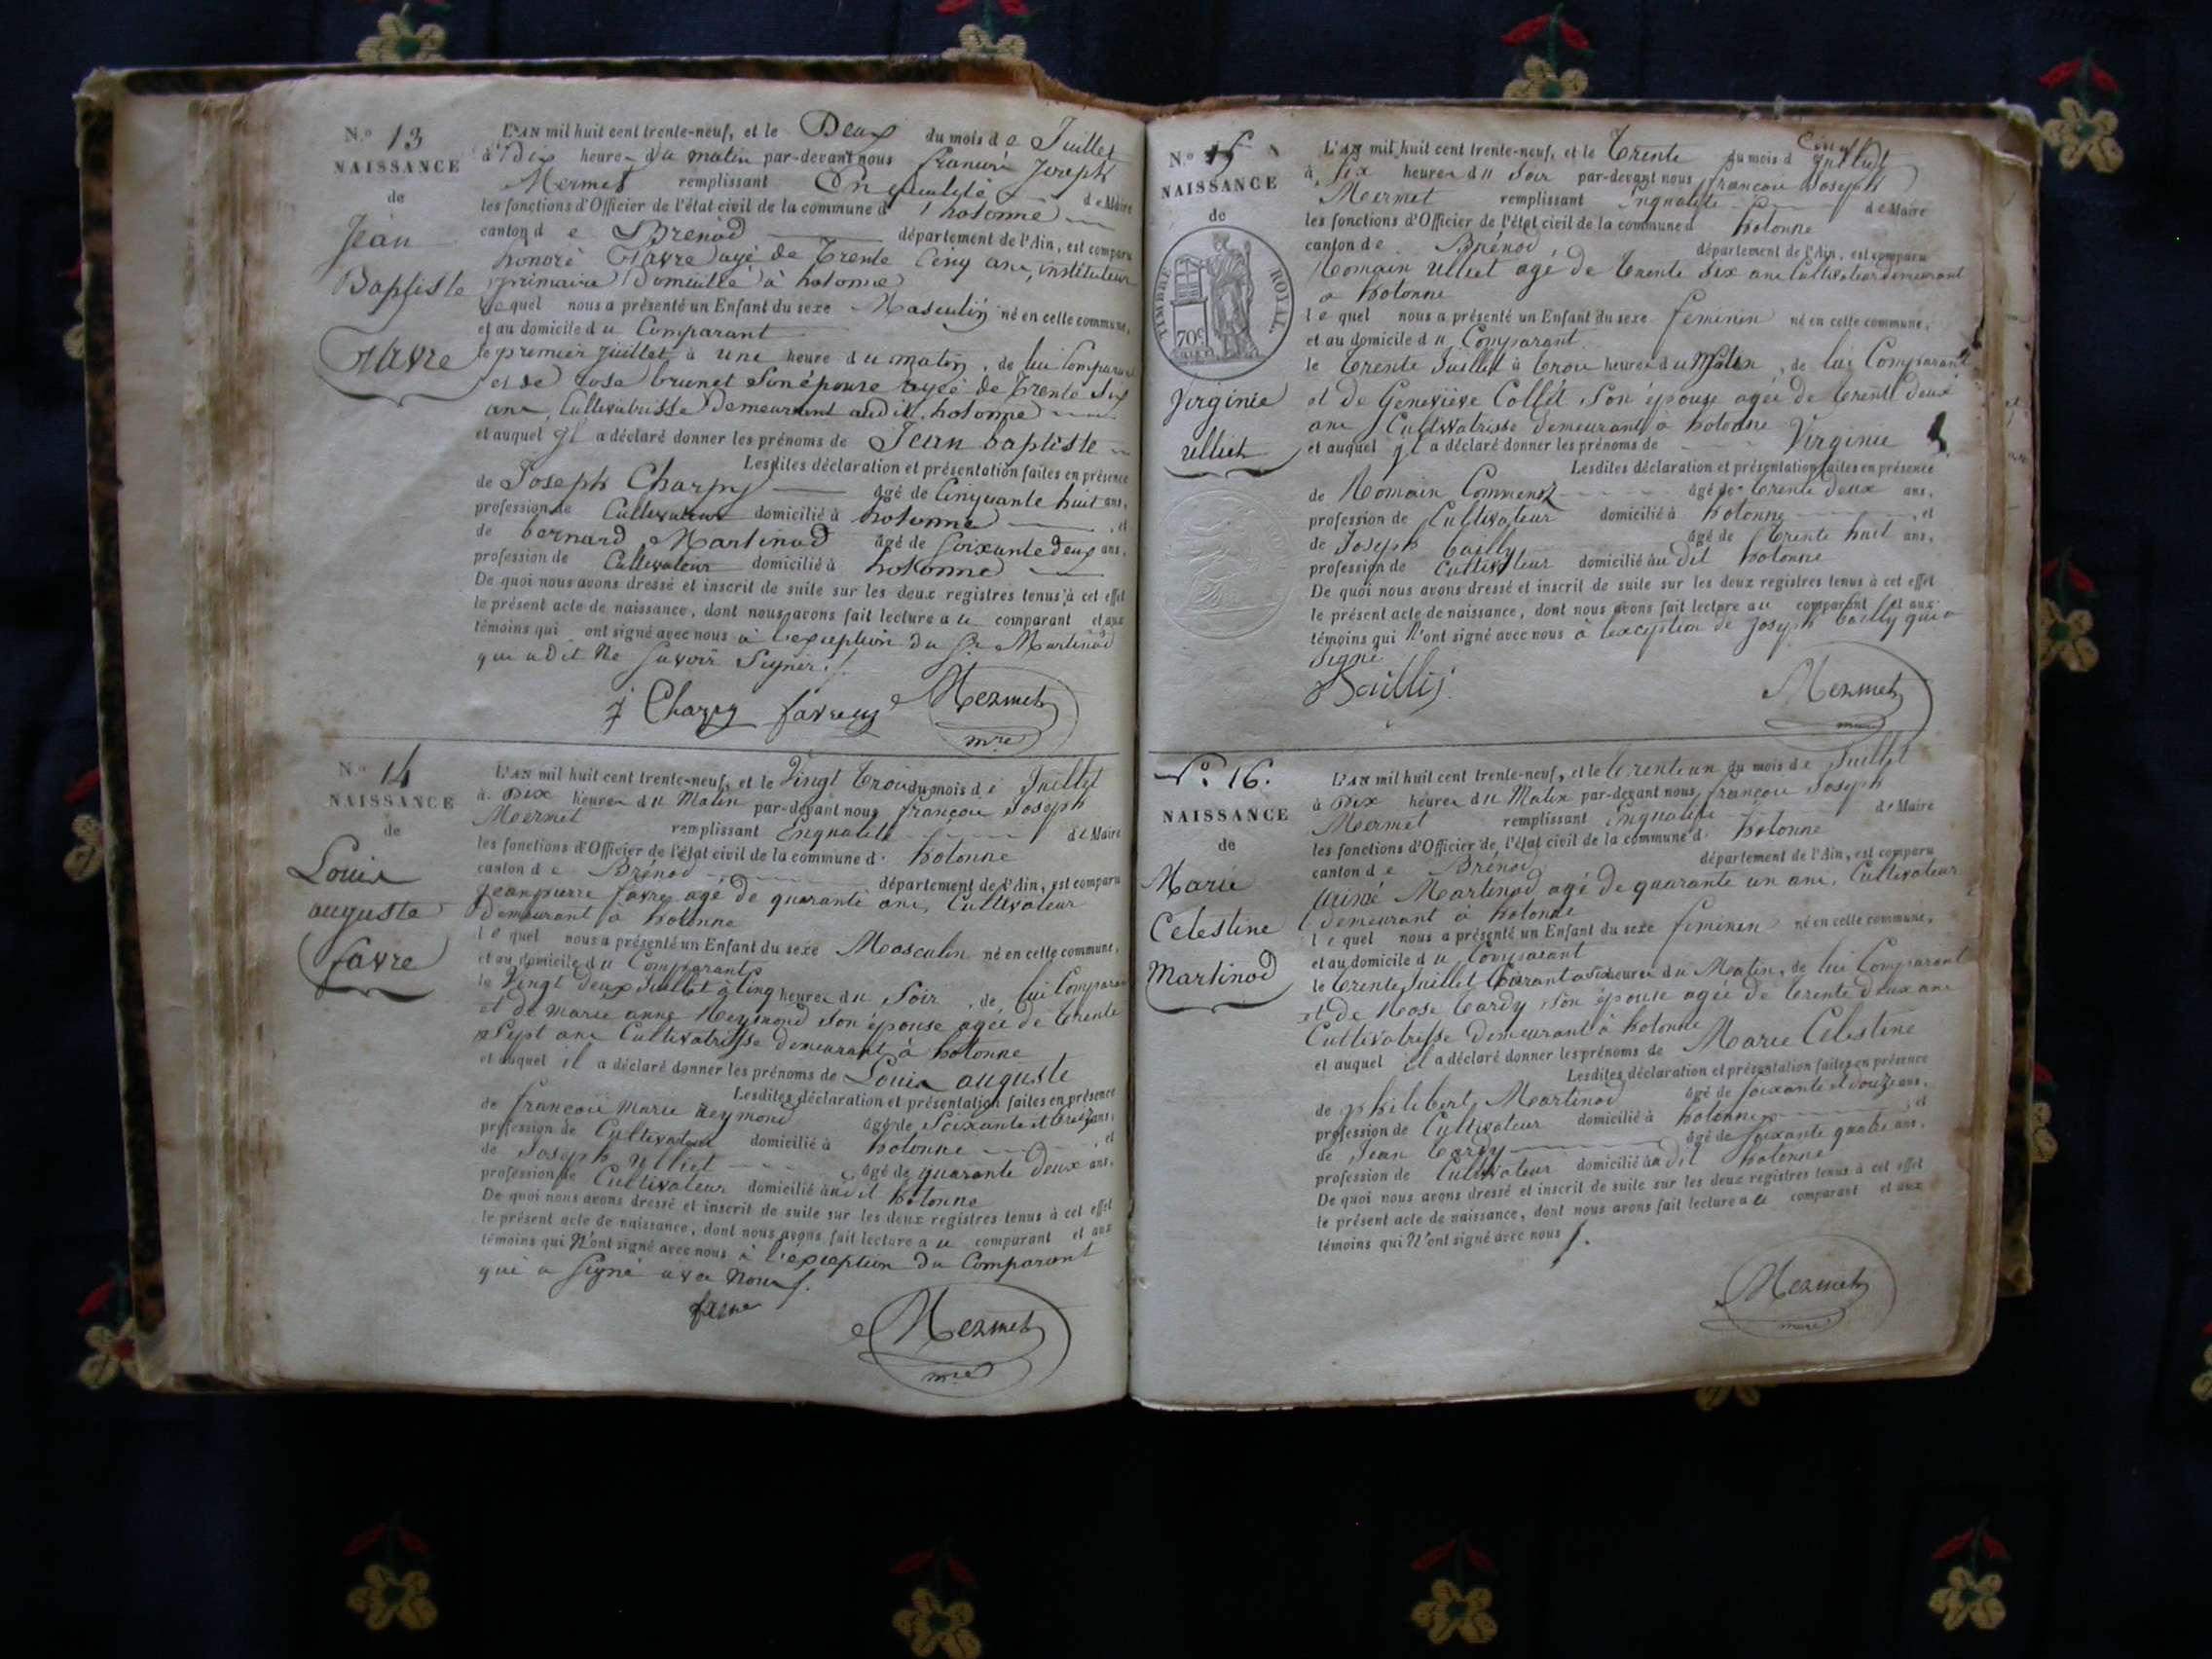 N.º 13
NAISSANCE
de
Jean
Baptiste
Favre
L'AN mil huit cent trente-neuf, et le Deux du mois de Juillet
à Dix heures du matin par-devant nous francois Joseph
Mermet remplissant En qualité de Maire
les fonctions d'Officier de l'état civil de la commune d' hotonne
canton de Brenod département de l'Ain, est comparu
honoré Favre agé de Trente Cinq ans, instituteur
primaire Domicillé à hotonne
lequel nous a présenté un Enfant du sexe Masculin né en cette commune,
et au domicile du Comparant
le premier Juillet à une heure du matin, de lui Comparant
et de Rose brunet Son épouse agée de Trente Six
ans, Cultivatrisse Demeurant audit hotonne
et auquel il a déclaré donner les prénoms de Jean baptiste
Lesdites déclaration et présentation faites en présence
de Joseph Charpy âgé de Cinquante huit ans,
profession de Cultivateur domicilié à hotonne, et
de bernard Martinod âgé de Soixante deux ans,
profession de Cultivateur domicilié à hotonne
De quoi nous avons dressé et inscrit de suite sur les deux registres tenus à cet effet
le présent acte de naissance, dont nous avons fait lecture au comparant et aux
témoins qui ont signé avec nous à l'exception du Sr Martinod
qui a dit Ne Savoir Signer
J Charpy favre Mermet
mre
N.º 14
NAISSANCE
de
Louis
auguste
favre
L'AN mil huit cent trente-neuf, et le Vingt Trois du mois de Juillet
à Dix heures du Matin par-devant nous francois Joseph
Mermet remplissant Enqualité de Maire
les fonctions d'Officier de l'état civil de la commune d' hotonne
canton de Brénod département de l'Ain, est comparu
Jean pierre favre agé de quarante ans, Cultivateur
Demeurant à hotonne
lequel nous a présenté un Enfant du sexe Masculin né en cette commune,
et au domicile du Comparant
le Vingt Deux Juillet à Cinq heures du Soir, de lui Comparant
et de marie anne Reymond Son épouse agée de Trente
Sept ans Cultivatrisse Demeurant à hotonne
et auquel il a déclaré donner les prénoms de Louis auguste
Lesdites déclaration et présentation faites en présence
de francois Marie Reymond âgé de Soixante et treize ans,
profession de Cultivateur domicilié à hotonne, et
de Joseph Ulliet âgé de quarante deux ans,
profession de Cultivateur domicilié audit hotonne
De quoi nous avons dressé et inscrit de suite sur les deux registres tenus à cet effet
le présent acte de naissance, dont nous avons fait lecture au comparant et aux
témoins qui N'ont signé avec nous à l'exception du Comparant
qui a Signé avec Nous
favre
Mermet
mre
N.º 15
NAISSANCE
de
TIMBRE ROYAL
70c
Virginie
Ulliet
L'AN mil huit cent trente-neuf, et le Trente du mois d Juillet
à Six heures du Soir par-devant nous francois Joseph
Mermet remplissant Enqualité de Maire
les fonctions d'Officier de l'état civil de la commune d hotonne
canton de Brénod, département de l'Ain, est comparu
Romain Ulliet agé de Trente Six ans Cultivateur demeurant
à hotonne
lequel nous a présenté un Enfant du sexe feminin né en cette commune,
et au domicile du Comparant
le Trente Juillet à Trois heures du Matin, de lui Comparant
et de Geneviève Collet Son épouse agée de Trente deux
ans Cultivatrisse Demeurant à hotonne
et auquel il a déclaré donner les prénoms de Virginie
Lesdites déclaration et présentation faites en présence
de Romain âgé de Trente Deux ans,
profession de Cultivateur domicilié à hotonne, et
de Joseph bailly âgé de Trente huit ans,
profession de Cultivateur domicilié audit hotonne
De quoi nous avons dressé et inscrit de suite sur les deux registres tenus à cet effet
le présent acte de naissance, dont nous avons fait lecture au comparant et aux
témoins qui N'ont signé avec nous à l'exception de Joseph bailly qui a
Signé
Mermet
N.º 16.
NAISSANCE
de
Marie
Celestine
Martinod
L'AN mil huit cent trente-neuf, et le Trente un du mois de Juillet
à Dix heures du Matin par-devant nous francois Joseph
Mermet remplissant Enqualité de Maire
les fonctions d'Officier de l'état civil de la commune d' hotonne
canton de Brénod département de l'Ain, est comparu
Aimé Martinod agé De quarante un ans, Cultivateur
Demeurant à hotonne
lequel nous a présenté un Enfant du sexe feminin né en cette commune,
et au domicile du Comparant
le Trente Juillet Courant à Six heures du Matin, de lui Comparant
et De Rose Tardy Son épouse agée de Trente deux ans
Cultivatrisse Demeurant à hotonne
et auquel il a déclaré donner les prénoms de Marie Celestine
Lesdites déclaration et présentation faites en présence
de philibert Martinod âgé de Soixante et douze ans,
profession de Cultivateur domicilié à hotonne, et
de Jean Tardy âgé de Soixante quatre ans,
profession de Cultivateur domicilié audit hotonne
De quoi nous avons dressé et inscrit de suite sur les deux registres tenus à cet effet
le présent acte de naissance, dont nous avons fait lecture au comparant et aux
témoins qui N'ont signé avec nous
Mermet
mre